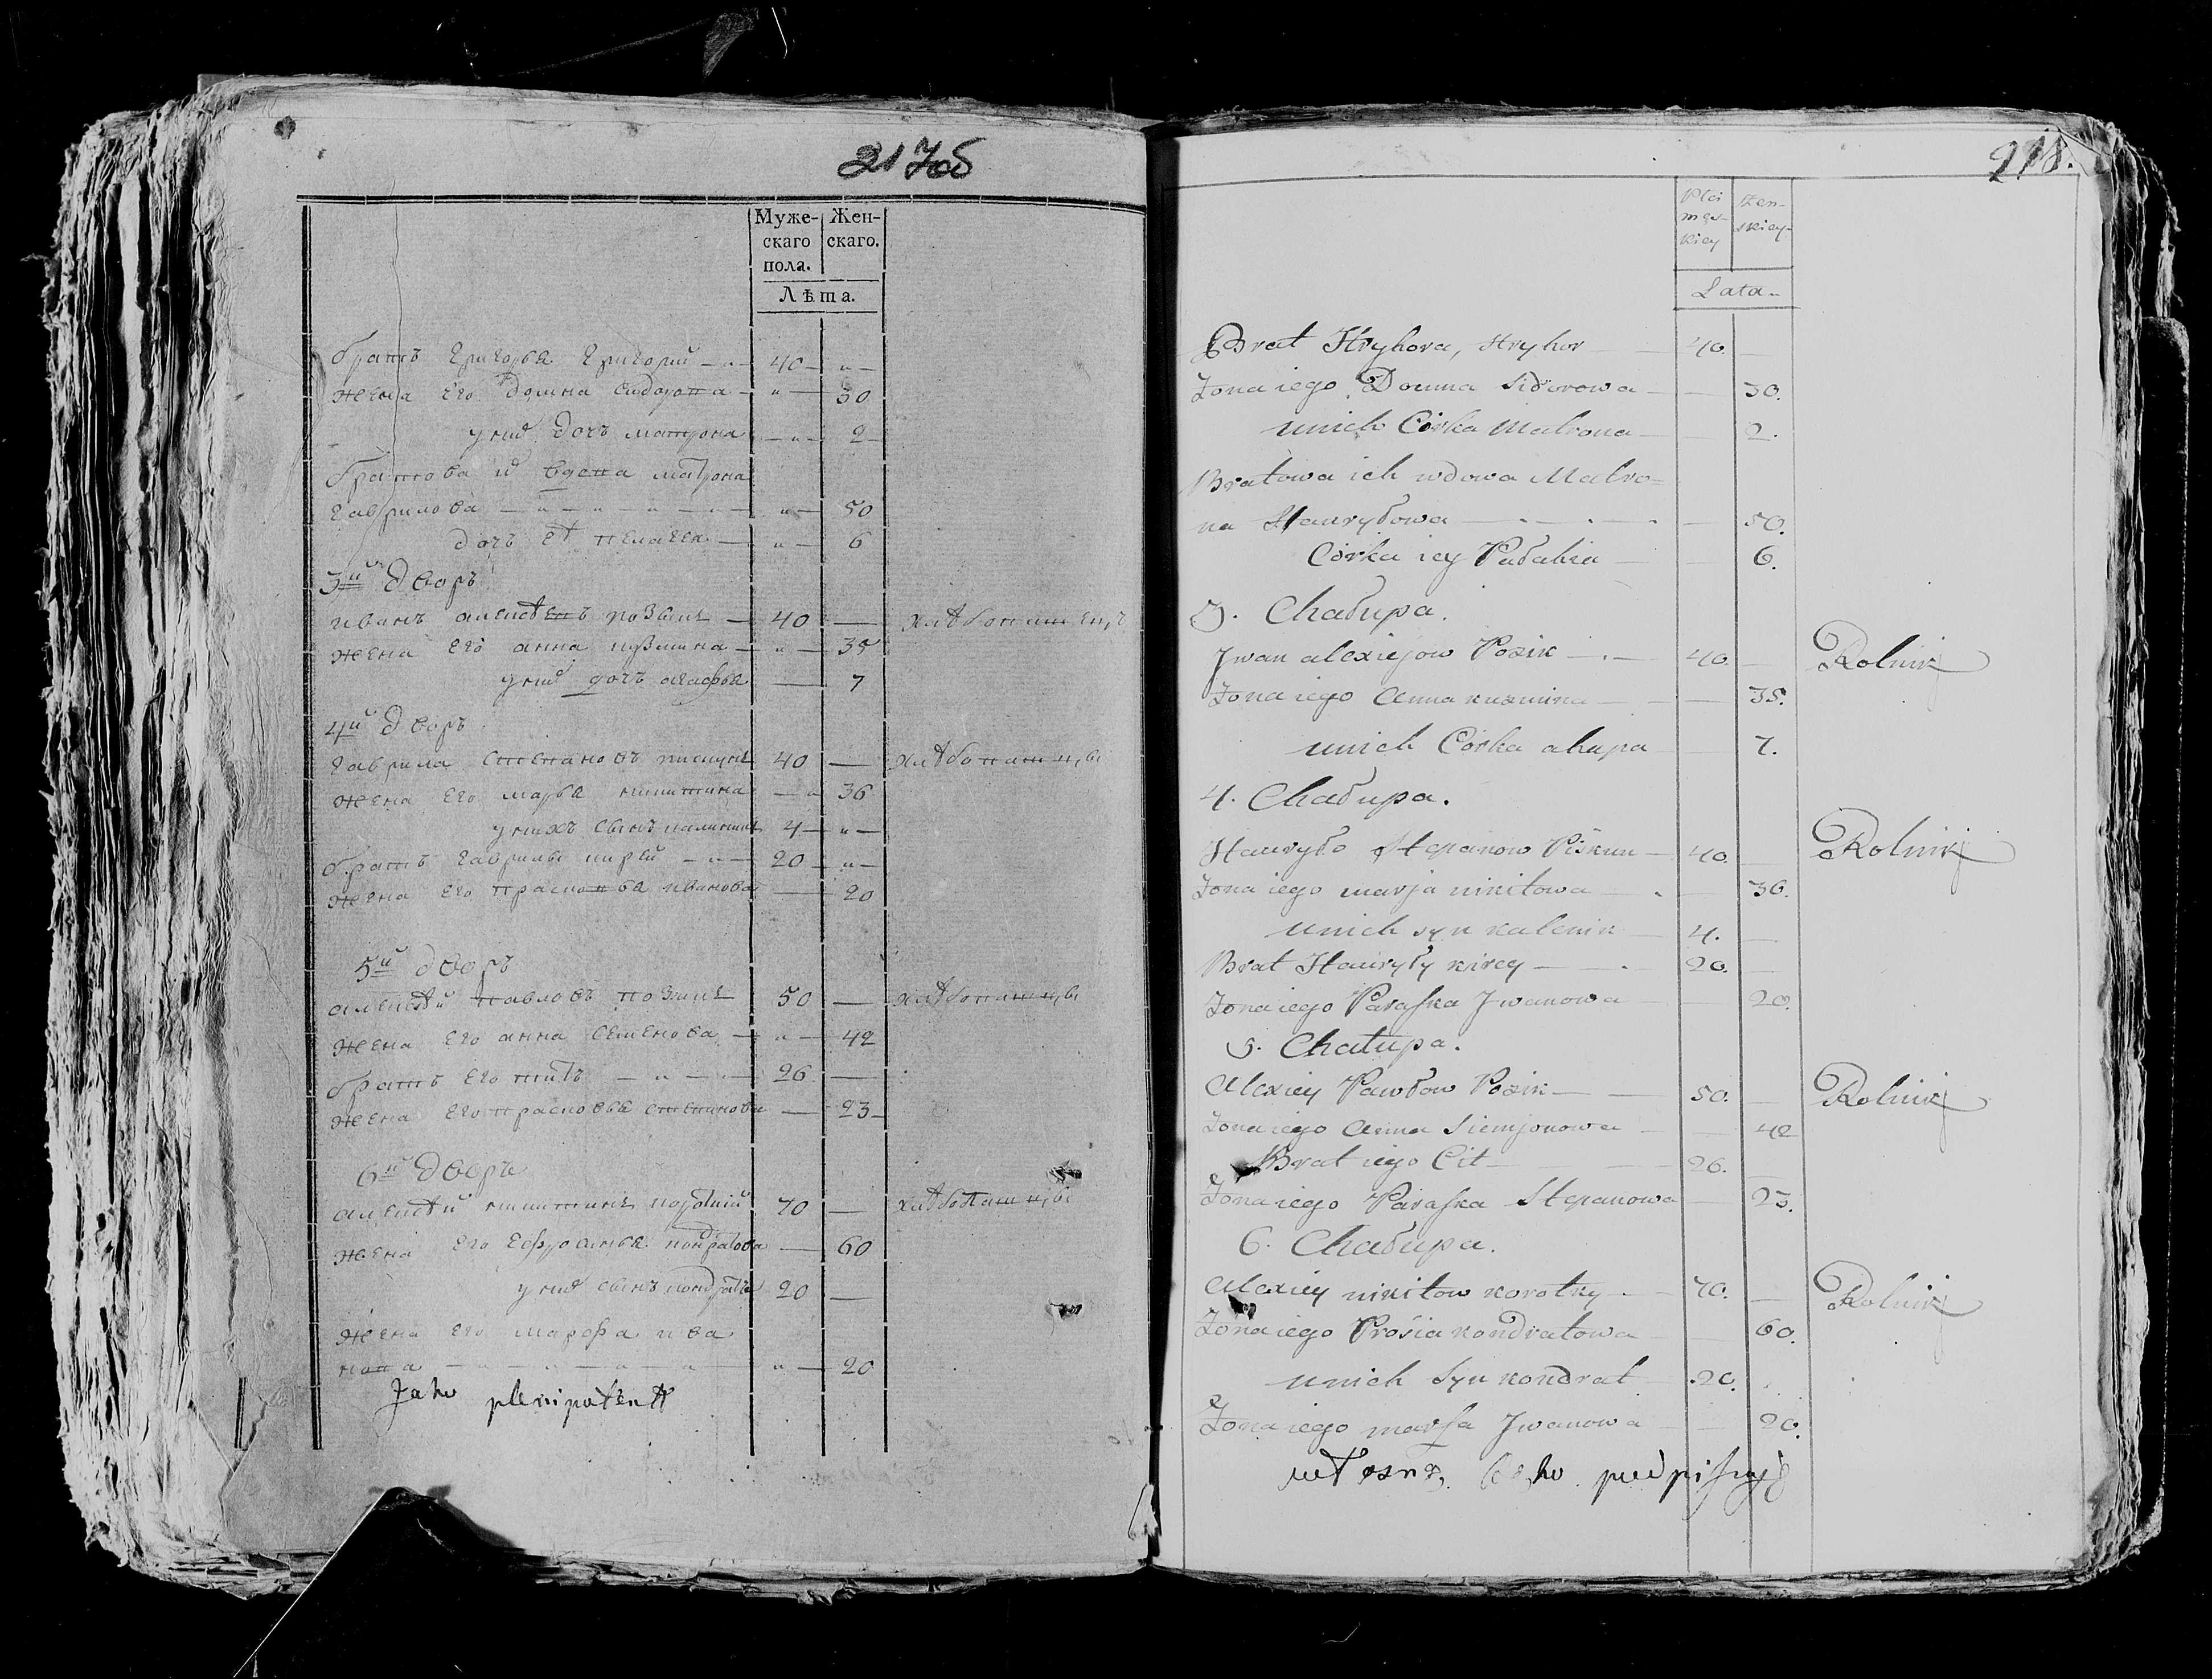 217об
Муже- Жен-
скаго скаго.
пола.
Лѣта.
братъ Григорья Григорий 40
жена Его домна Сидорова 30
у них дочъ матрона 2
братова их вдова матрона
Гаврилова 50
дочъ Её пелагея 6
3й дворъ
иванъ алексѣевъ позыкъ 40 хлѣбопашецъ
жена Его анна кузмина 35
у них дочъ агафья 7
4й дворъ
Гаврила Степановъ пискунъ 40 хлѣбопашцы
жена Его марья никитина 36
у нихъ сынъ калиникъ 4
братъ Гаврилы кирей 20
жена Его прасковья иванова 20
5й дворъ
алексѣй павловъ позыкъ 50 хлѣбопашцы
жена Его анна Семенова 42
братъ Его титъ 26
жена Его прасковья степанова 23
6й дворъ
алексѣй никитинъ короткий 70 хлѣбопашцы
жена Его Ефросинья кондратова 60
у них сынъ кондратъ 20
жена Его марфа ива
нова 20
Jako plenipotent
218.
Płci Żen-
męs- skiey
kiey
Lata
Brat Hryhora, Hryhor 40.
Żona iego Domna Sidorowa 30.
unich Córka Matrona 2.
Bratowa ich wdowa Matro-
na Hawryłowa 50.
Córka iey Pałahia 6.
3. Chałupa.
Jwan alexiejow Pozik 40. Rolnik
Żona iego Anna kuzmina 35.
unich Córka ahapa 7.
4. Chałupa.
Hawryło Stepanow Piskun 40. Rolnik
Żona iego marja nikitowa 36.
unich syn kalenik 4.
Brat Hawryły kirey 20.
Żona iego Paraska Jwanowa 20.
5. Chałupa.
Alexiey Pawłow Pozik 50. Rolnik
Żona iego Anna Siemjonowa 42
Brat iego Cit 26.
Żona iego Paraska Stepanowa 23.
6. Chałupa.
Alexiey nikitow korotky 70. Rolnik
Żona iego Prosia kondratowa 60.
unich Syn kondrat 20.
Żona iego marfa Jwanowa 20.
własną podpisuję